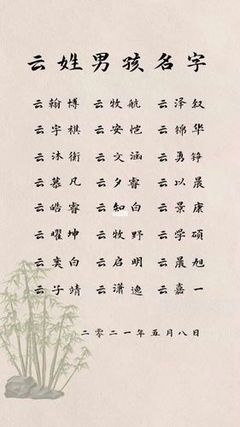 云姓男孩名字
云翰博 云牧航 云泽叙
云宇棋 云安恺 云锦华
云沐衡 云文涵 云勇铮
云慕凡 云夕睿 云以晨
云皓睿 云知白 云景康
云曜坤 云牧野 云学硕
云奕白 云启明 云晨旭
云子靖 云潇逸 云嘉一
二零二一年五月八日